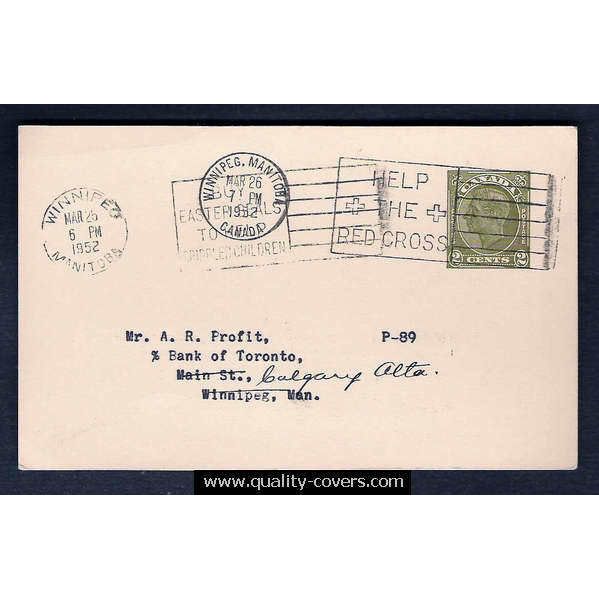 WINNIPEG
MAR 25
6 PM
1952
MANITOBA
WINNIPEG, MANITOBA
MAR 26
7 PM
1952
CANADA
BUY
EASTER SEALS
TO HELP
CRIPPLED CHILDREN
HELP
THE
RED CROSS
CANADA
2 CENTS 2
Mr. A. R. Profit, P-89
% Bank of Toronto,
Main St., Calgary Alta.
Winnipeg, Man.
www.quality-covers.com